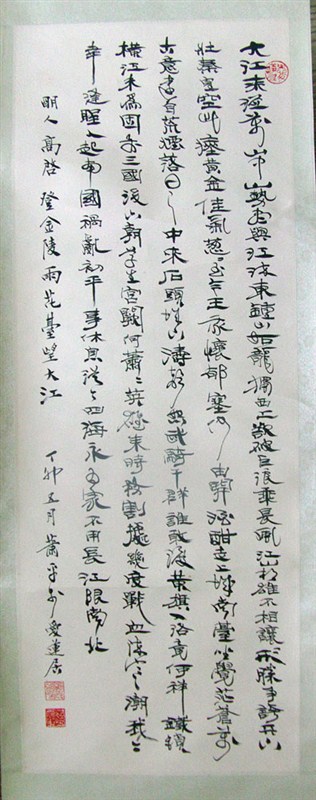 大江来從万山中山勢盡與江流東鍾山如龍獨西上欲破巨浪乘長風江山相雄不相讓形勝爭誇天下
壯秦皇空此瘞黃金佳氣葱〻至今王我懷鬱塞何由開酒酣走上城南臺坐覺茫蒼万
古意遠自荒煙落日之中来石頭城下濤聲怒武騎千群誰敢渡黃旗入洛竟何祥鐵鎖
橫江未為固前三國後六朝草生宮闕何蕭〻英雄乘時務割據幾度戰血流寒潮我生
幸逢聖人起南國禍亂初平事休息從今四海永為家不用長江限南北
明人高啓登金陵雨花臺望大江 丁卯五月蕭平於愛蓮居